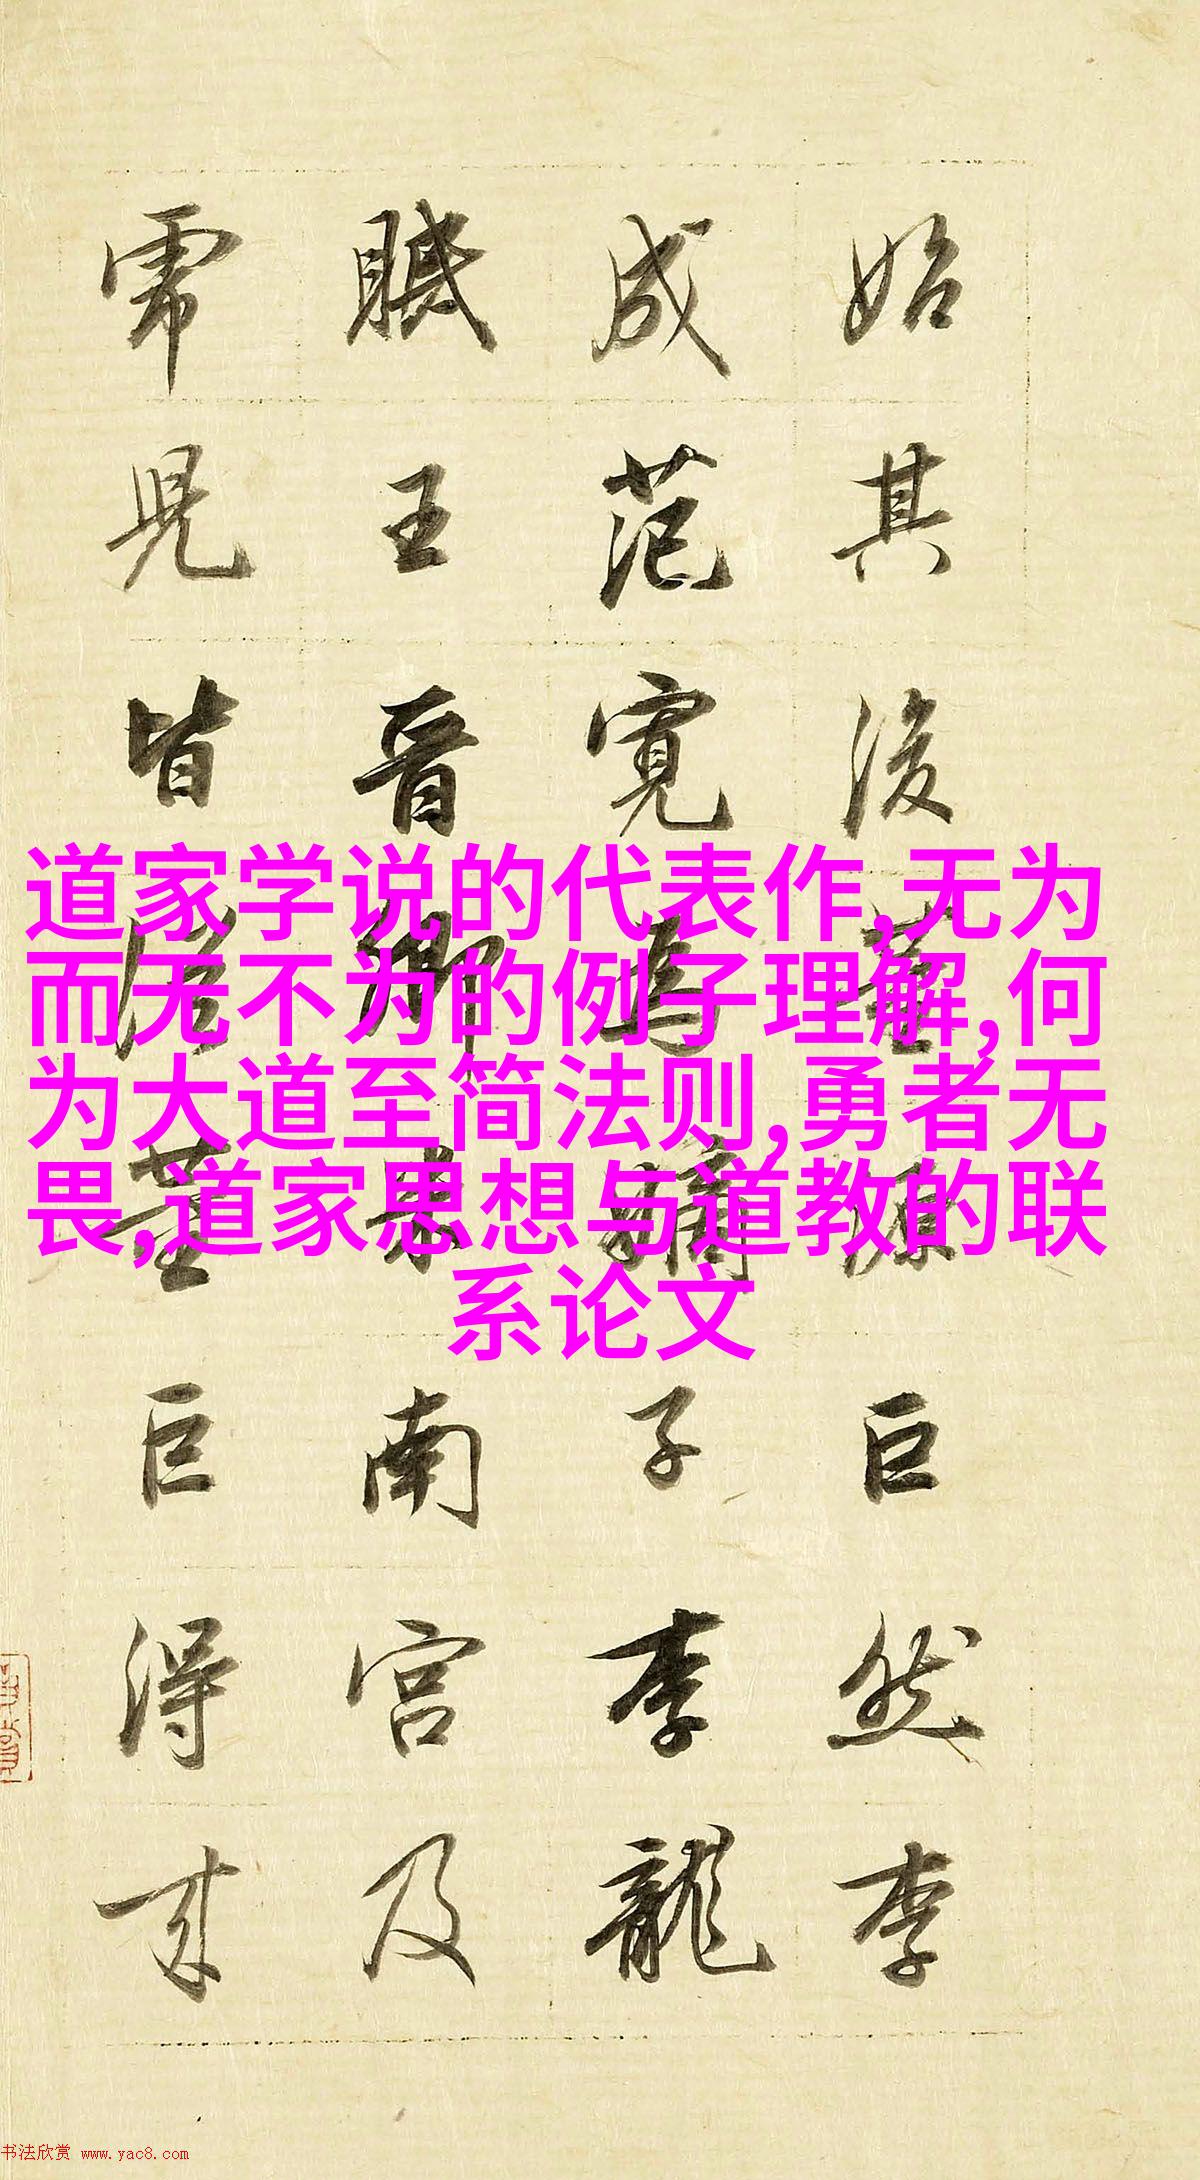 始其後董源巨然李
成范寬為嫡子李龍
眠王晉卿米南宮及
虎兒皆從董巨得來
道家学说的代表作,无为
而无不为的例子理解,何
为大道至简法则,勇者无
畏,道家思想与道教的联
系论文
书法欣赏 www.yac8.com